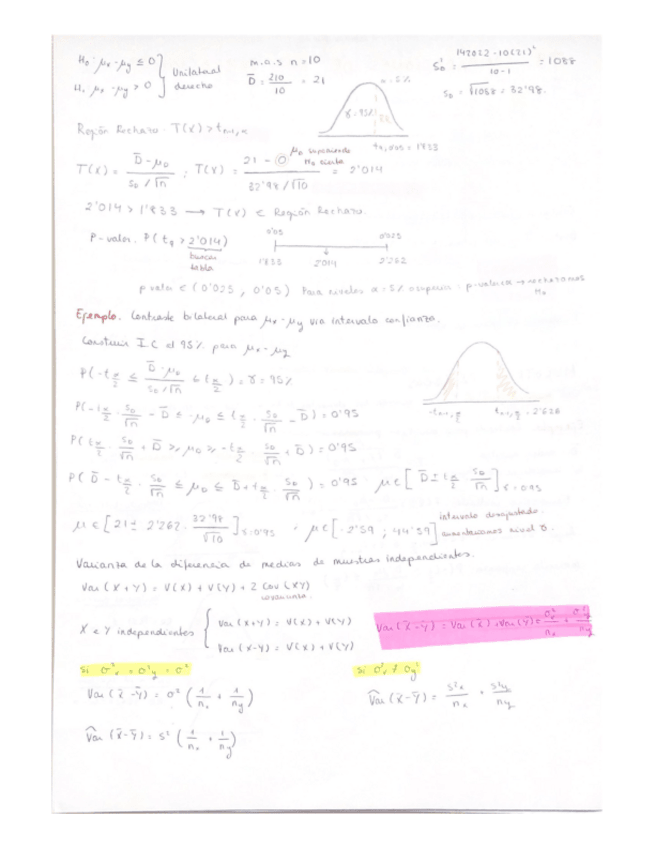 H₀: μx - μy ≤ 0 } Unilateral derecho
H₁: μx - μy > 0
m.a.s n=10
D̄ = 210/10 = 21
α = 5%
γ = 95%
142022 - 10(21)² / 10-1 = 1088
s_D = √1088 = 32'98.
Región Rechazo. T(x) > t n-1, α
t 9, 0'05 = 1'833
T(x) = D̄ - μ_D / s_D/√n ; T(x) = 21 - 0 / 32'98/√10 = 2'014
μ_D suponiendo H₀ cierta
2'014 > 1'833 → T(x) ∈ Región Rechazo.
P-valor. P( t₉ > 2'014)
buscar tabla
0'05 0'025
1'833 2'014 2'262
p valor ∈ (0'025, 0'05) Para niveles α = 5% p-valor<α → rechazamos H₀
Ejemplo. Contraste bilateral para μx - μy via intervalo confianza.
Construir I.C al 95% para μx - μy
P(-t α/2 ≤ D̄ - μ_D / s_D/√n ≤ t α/2) = γ = 95%
P(-t α/2 · s_D/√n - D̄ ≤ -μ_D ≤ t α/2 · s_D/√n - D̄) = 0'95
P(t α/2 · s_D/√n + D̄ ≥ μ_D ≥ -t α/2 · s_D/√n + D̄) = 0'95
P(D̄ - t α/2 · s_D/√n ≤ μ_D ≤ D̄ + t α/2 · s_D/√n) = 0'95. μ ∈ [D̄ ± t α/2 · s_D/√n] γ=0'95
μ ∈ [21 ± 2'262 · 32'98/√10] γ=0'95 . μ ∈ [-2'59 ; 44'59]
intervalo
aumentamos nivel γ.
Varianza de la diferencia de medias de muestras independientes.
Var (X + Y) = V(X) + V(Y) + 2 Cov (XY)
covarianza.
X e Y independientes { Var (X+Y) = V(X) + V(Y)
Var (X-Y) = V(X) + V(Y)
Var (x̄ - ȳ) = Var (x̄) + Var (ȳ) = σ²x/nx + σ²y/ny
Si σ²x = σ²y = σ²
Si σ²x ≠ σ²y
Var (x̄ - ȳ) = σ² (1/nx + 1/ny)
V̂ar (x̄ - ȳ) = s²x/nx + s²y/ny
V̂ar (x̄ - ȳ) = s² (1/nx + 1/ny)